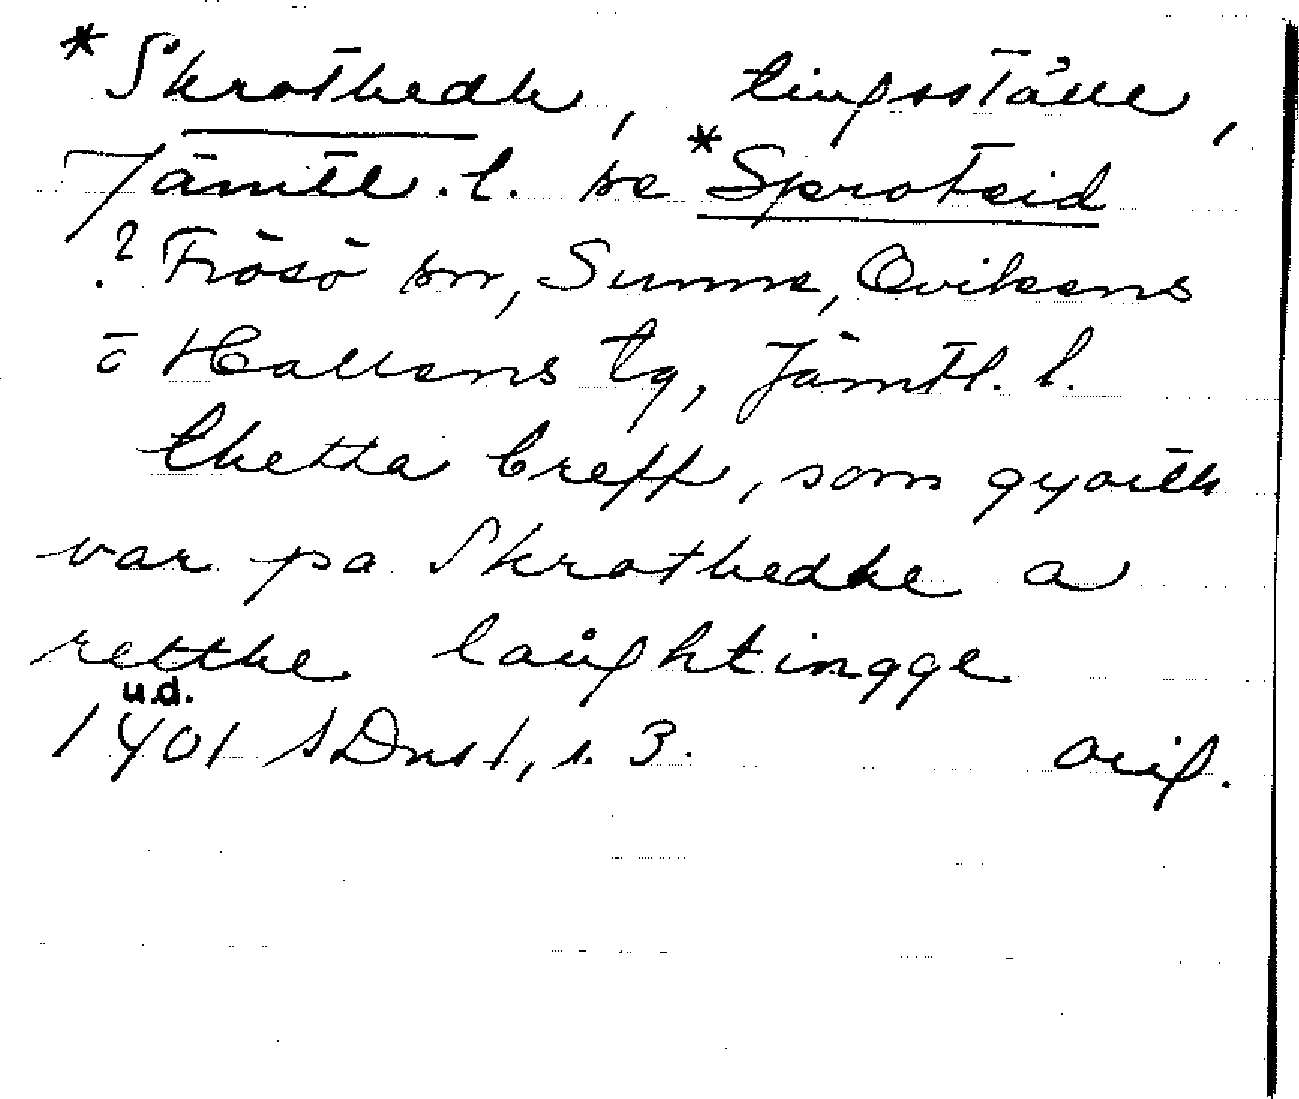 *Skrothedh, tingsställe,
Jämtl. l. se *Sproteid
? Frösö sn, Sunne, Ovikens
o Hallens tg, Jämtl. l.
thetta breff, som gyorth
var pa Skrothedhe a
retthe laughtingge
u.d.
1401 SDns1, s. 3. orig.